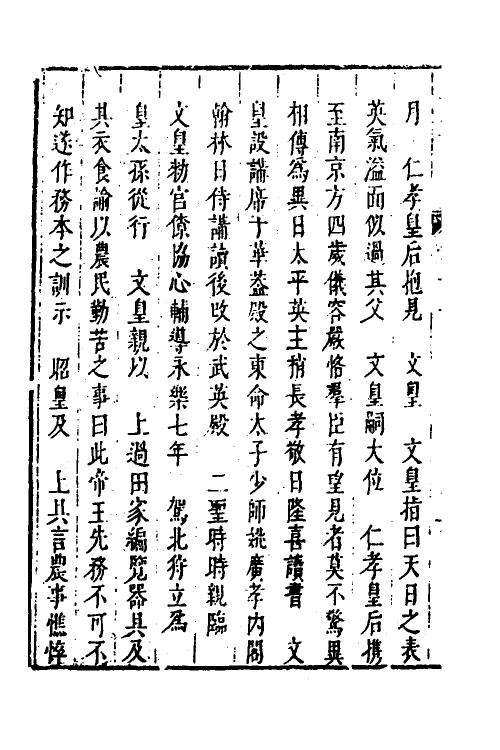 月　仁孝皇后抱見　文皇　文皇指曰天日之表
英氣溢面似過其父　文皇嗣大位　仁孝皇后携
至南京方四歲儀容嚴恪羣臣有望見者莫不驚異
相傳爲異日太平英主稍長孝敬日隆喜讀書　文
皇設講席于華葢殿之東命太子少師姚廣孝内閣
翰林日侍講讀後改於武英殿　二聖時時親臨
文皇勑官僚協心輔導永樂七年　駕北狩立爲
皇太孫從行　文皇親以　上過田家徧覧器具及
其衣食諭以農民勤苦之事曰此帝王先務不可不
知遂作務本之訓示　昭皇及　上具言農事憔悴